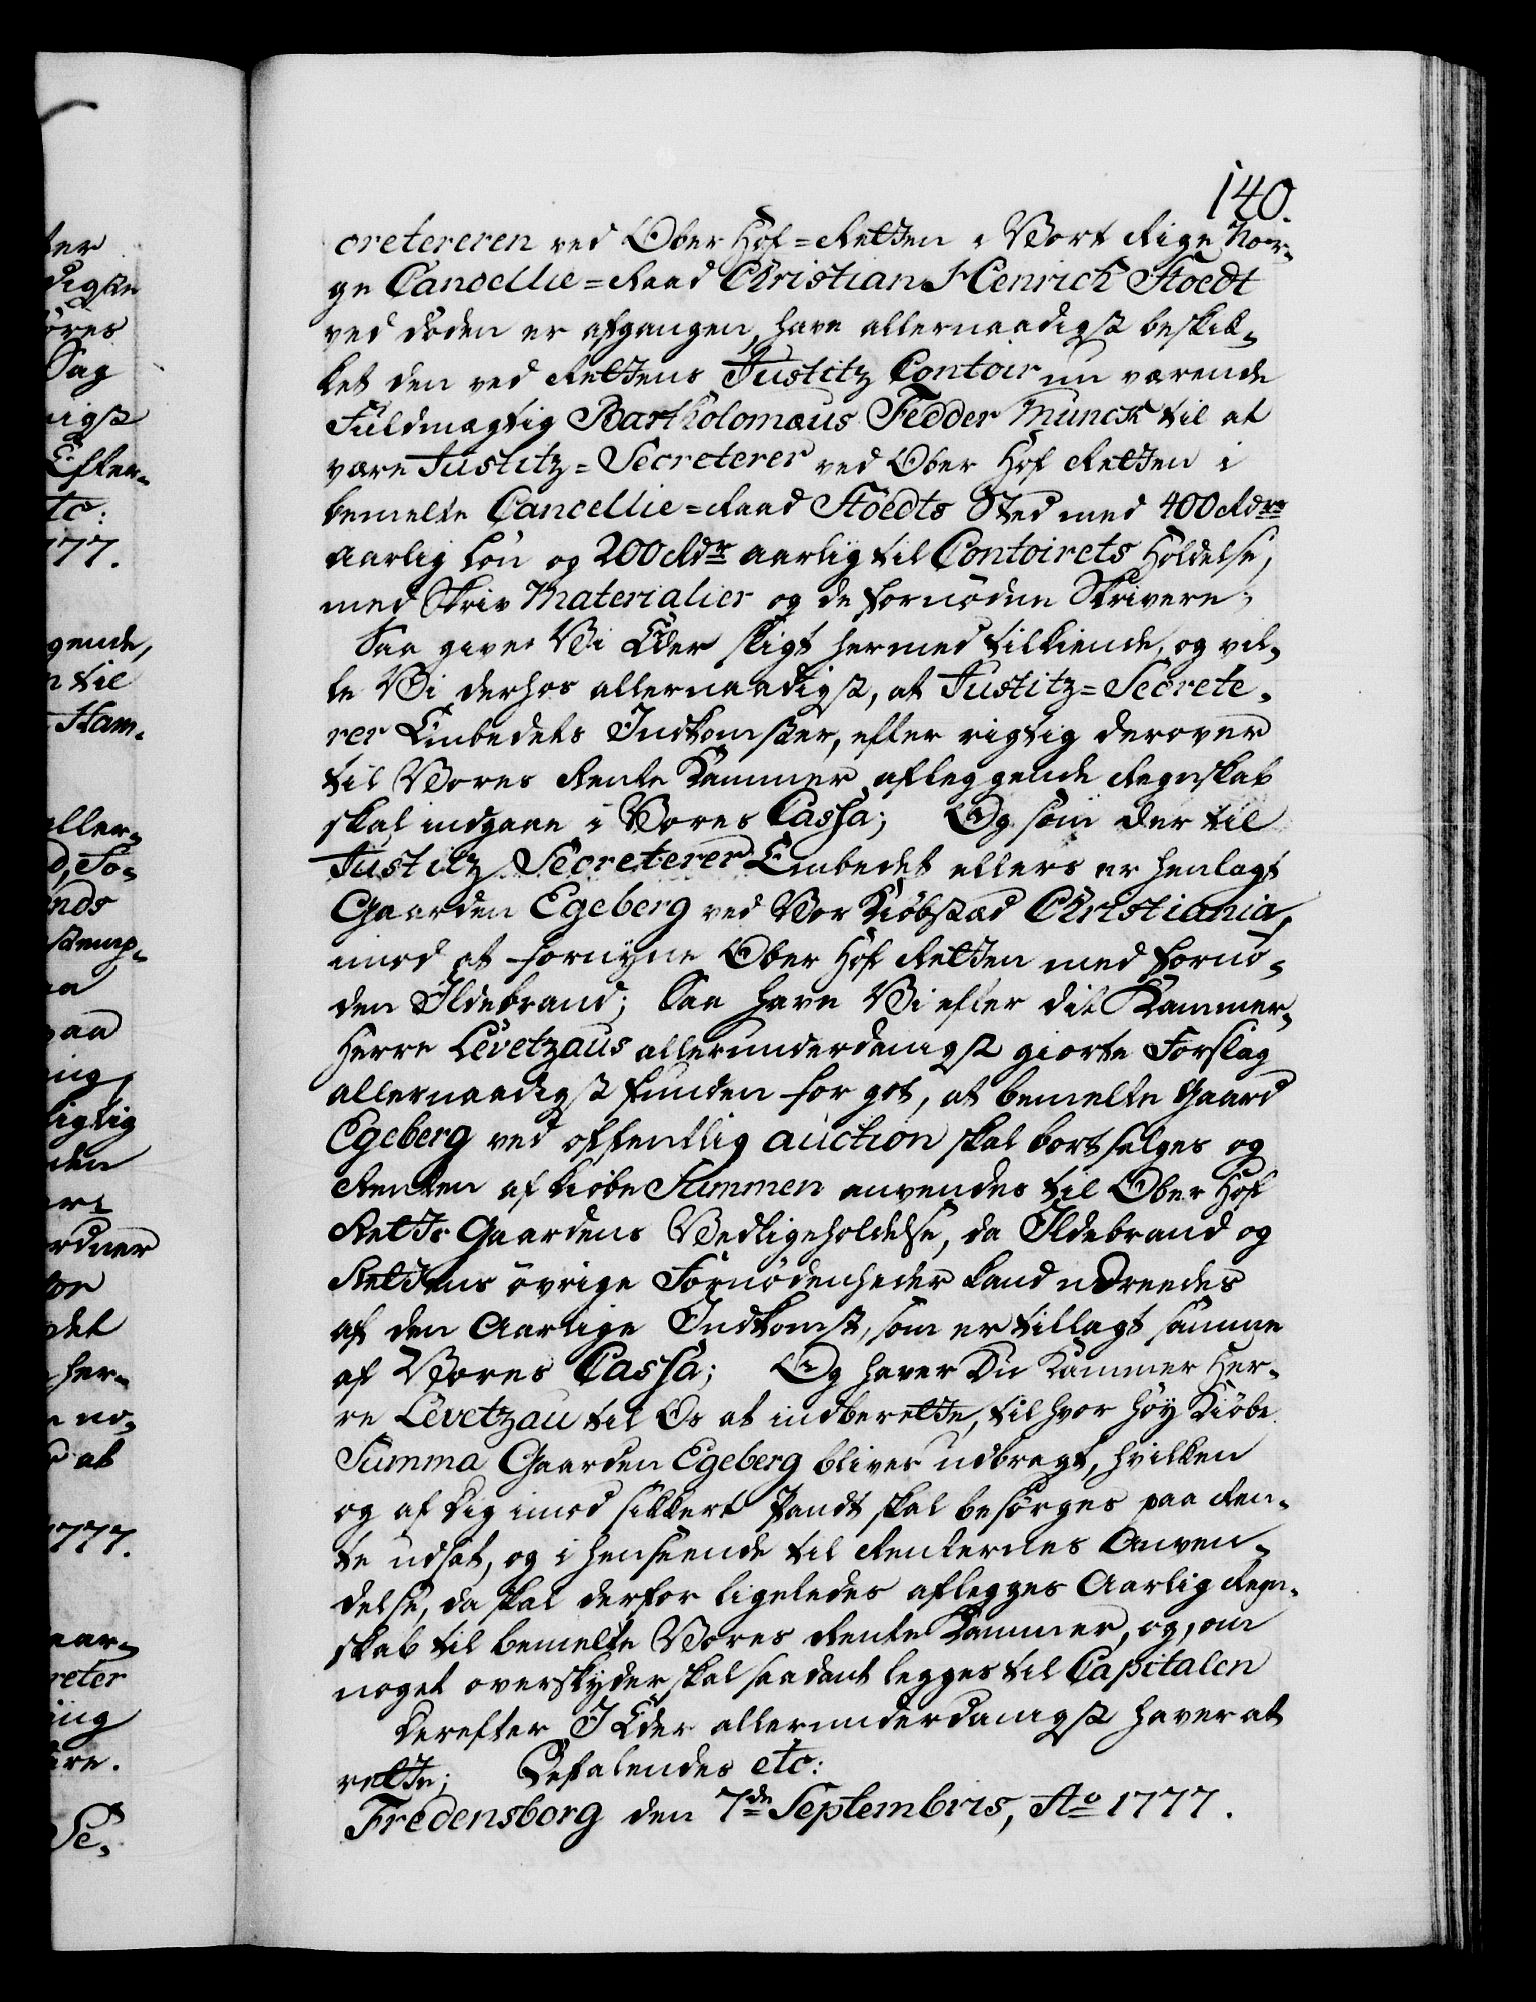 140.
cretereren ved Ober Hof=Retten i Vort Rige Nor-
ge Cancellie=Raad Christian Henrich Stoedt
ved døden er afgangen, have allernaadigst beskik-
ket den ved Rettens Justitz Contoir nu værende
Fuldmægtig Bartholomæus Fedder Munch til at
være Justitz=Secreterer ved Ober Hof Retten i
bemelte Cancellie=Raad Stoedts Sted med 400 Rdrs
Aarlig Løn og 200 Rdr aarlig til Contoirets Holdelse,
med Skriv Materialier og de fornødne Skrivere;
Saa give Vi Eder sligt hermed tilkiende, og vil-
le Vi derhos allernaadigst, at Justitz=Secrete-
rer Embedets Indkomster, efter rigtig derover
til Vores Rente Kammer afleggende Regnskab
skal indgaae i Vores Cassa; Og som der til
Justitz Secreterer Embedet ellers er henlagt
Gaarden Egeberg ved Vor Kiøbstæd Christiania,
imod at forsyne Ober Hof Retten med fornø-
den Ildebrand; Saa have Vi efter dit Kammer-
Herre Levetzaus allerunderdanigst giorte Forslag
allernaadigst funden for got, at bemelte Gaard
Egeberg ved offentlig auction skal bortselges og
Renten af Kiøbe Summen anvendes til Ober Hof
Retts Gaardens Vedligeholdelse, da Ildebrand og
Rettens øvrige Fornødenheder kand udreedes
af den Aarlige Indkomst, som er tillagt samme
af Vores Cassa; Og haver Du Kammer Her-
re Levetzau til Os at indberette, til hvor høy Kiøbe
Summa Gaarden Egeberg bliver udbragt, hvilken
og af Dig imod sikkert Pandt skal besørges paa Ren-
te udsat, og i henseende til Renternes Anven-
delse, da skal derfor ligeledes aflegges Aarlig Regn-
skab til bemelte Vores Rente Kammer, og, om
noget overskyder skal saadant legges til Capitalen
Derefter I Eder allerunderdanigst haver at
rette; Befalendes etc:
Fredensborg den 7de Septembris, Ao 1777.